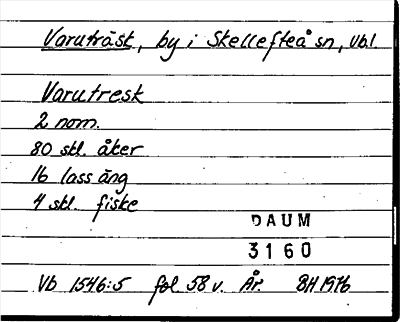 Varuträsk, by i Skellefteå sn, Vbl.
Varutresk
2 nom.
80 skl. åker
16 lass äng
4 skl. fiske
DAUM
3160
Vb 1546:5 fol 58 v. År. BH 1976